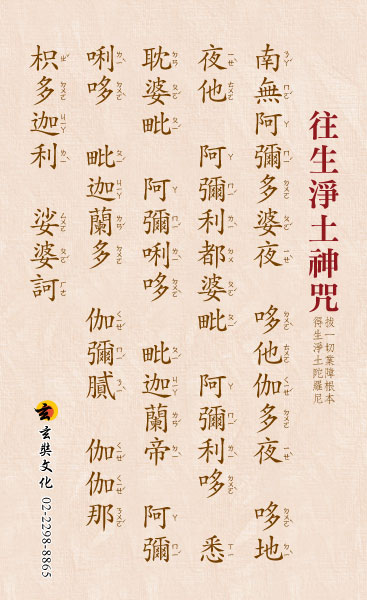 往生淨土神咒
拔一切業障根本
得生淨土陀羅尼
南無阿彌多婆夜 哆他伽多夜 哆地
夜他 阿彌利都婆毗 阿彌利哆 悉
耽婆毗 阿彌唎哆 毗迦蘭帝 阿彌
唎哆 毗迦蘭多 伽彌膩 伽伽那
枳多迦利 娑婆訶
玄 玄奘文化 02-2298-8865